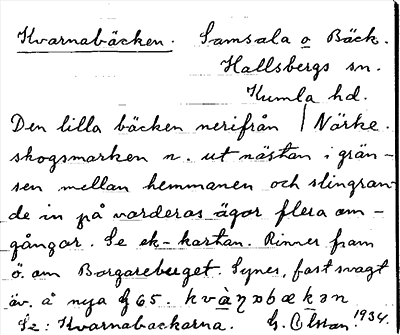 Kvarnabäcken. Samsala o Bäck.
Hallsbergs sn.
Kumla hd.
Den lilla bäcken nerifrån / Närke.
skogsmarken n. ut nästan i grän-
sen mellan hemmanen och slingran-
de in på varderas ägor flera om-
gångar. Se ek-kartan. Rinner fram
ö. om Borgareberget. Synes, fast svagt
äv. å nya G 65.
Se: Kvarnabackarna. G. Olsson. 1934.